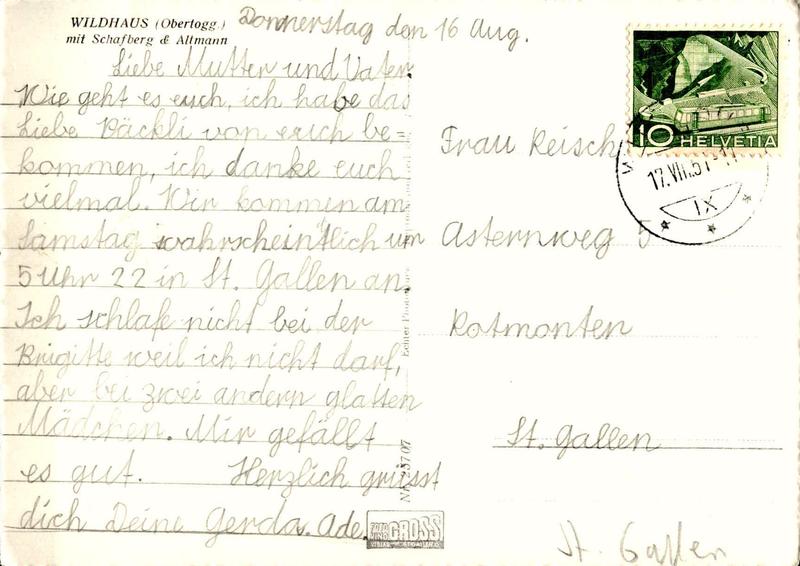 WILDHAUS (Obertogg.)
mit Schafberg & Altmann
Donnerstag den 16 Aug.
Liebe Mutter und Vater
Wie geht es euch, ich habe das
Liebe Päckli von euch be=
kommen, ich danke euch
vielmal. Wir kommen am
Samstag wahrscheintlich um
5 Uhr 22 in St. Gallen an.
Ich schlafe nicht bei der
Brigitte weil ich nicht darf,
aber bei zwei andern glatten
Mädchen. Mir gefällt
es gut. Herzlich grüsst
dich Deine Gerda. Ade.
GROSS
10 HELVETIA
IX
Frau Reisch
Asternweg 5
Rotmonten
St. Gallen
St. Gallen